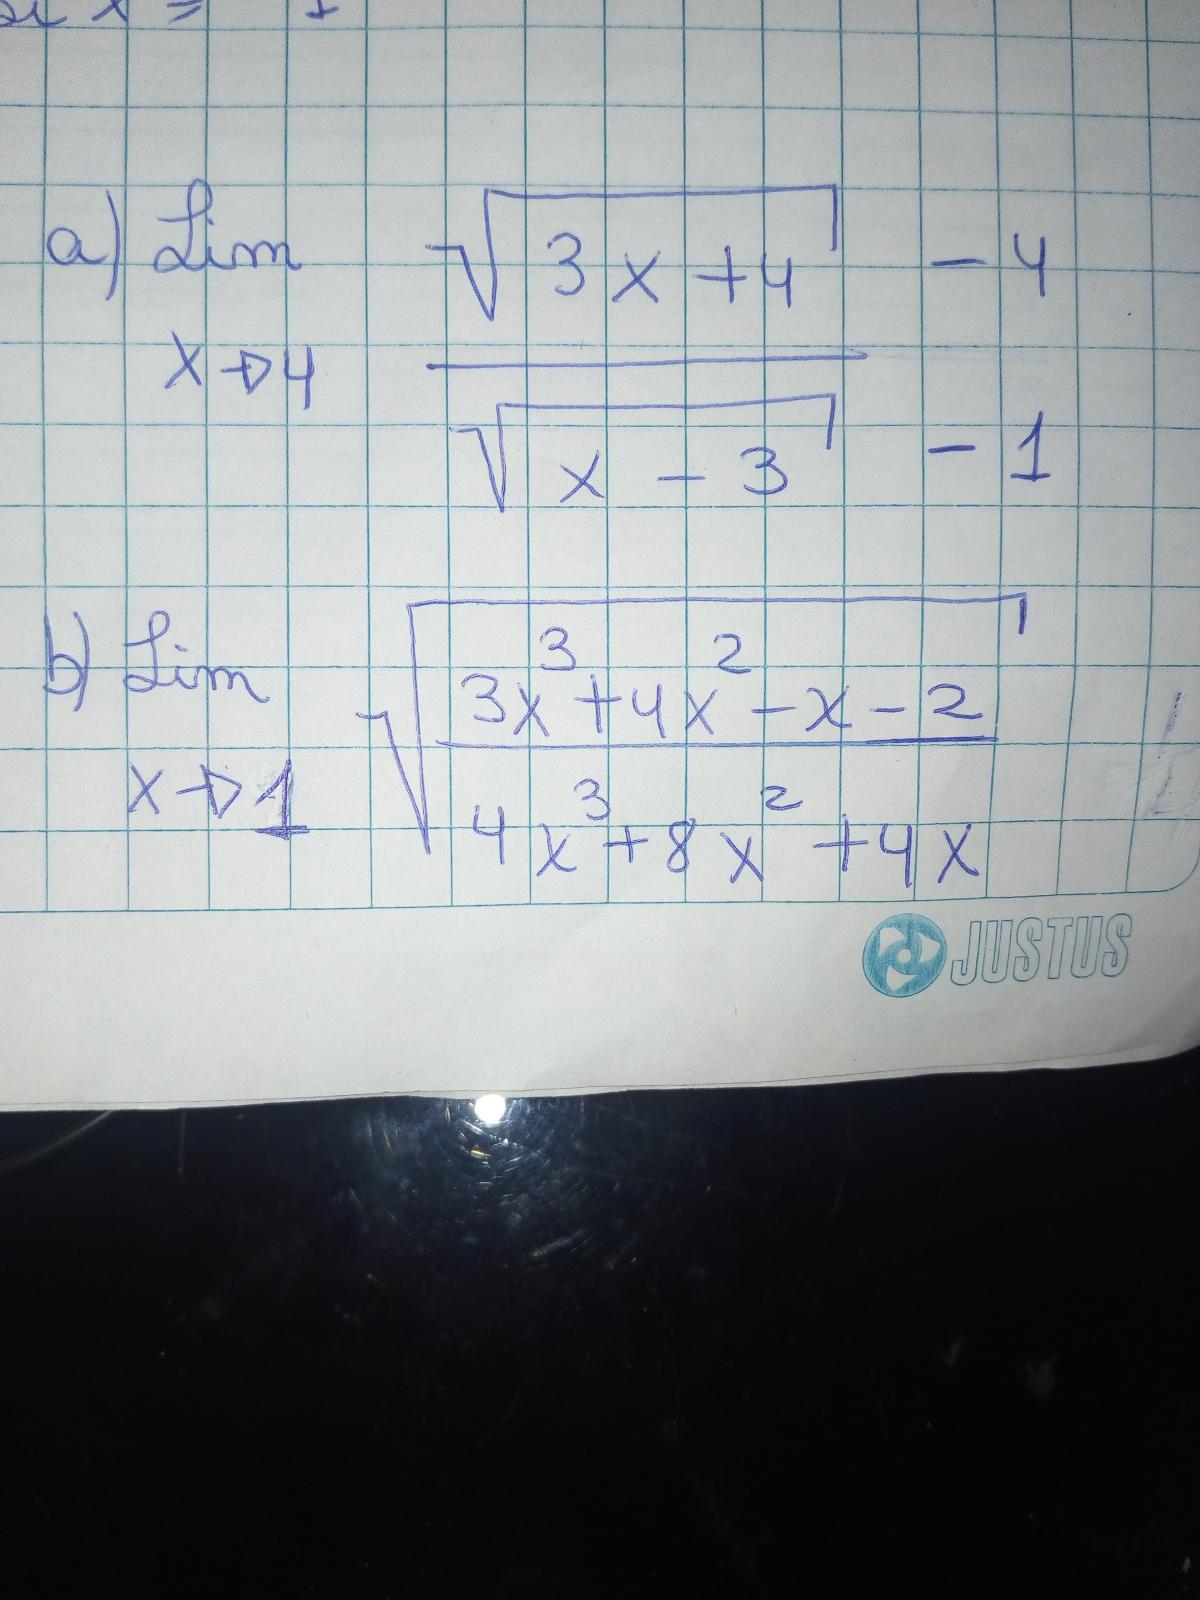 a) Lim √3x+4 - 4
x→4 √x - 3 - 1
b) Lim √3x³+4x²-x-2
x→1 4x³+8x²+4x
JUSTUS